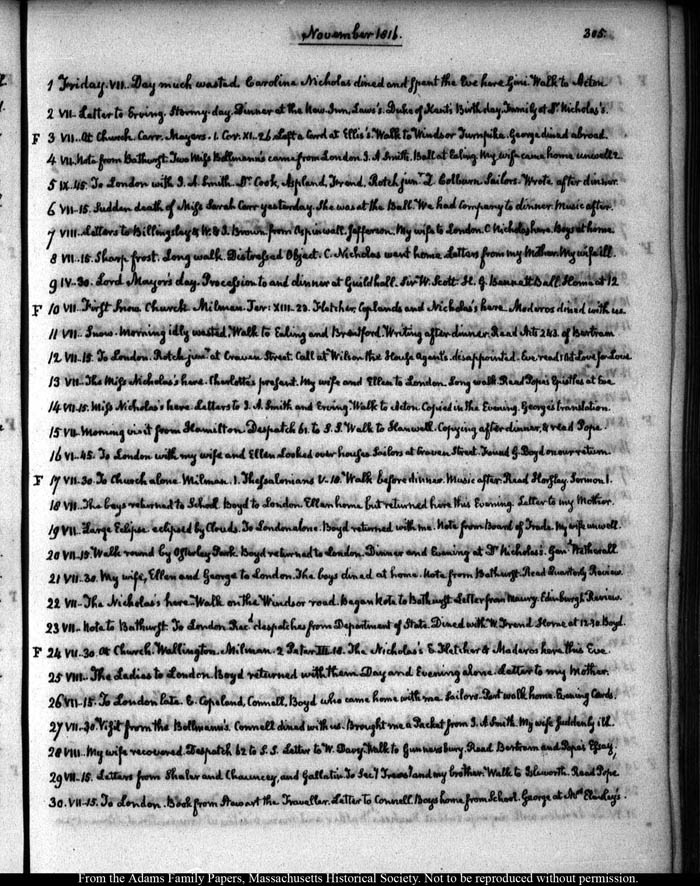 November 1816.
305.
1 Friday. VII. Day much wasted. Caroline Nicholas dined and spent the Eve here Gini. Walk to Acton
2 VII. Letter to Erving. Stormy day. Dinner at the New Inn. Laws's. Duke of Kent's Birth day. Family at Dr Nicholas's.
F 3 VII. At Church. Carr. Mayers. 1. Cor. XI. 26. Left a Card at Ellis's. Walk to Windsor Turnpike. George dined abroad.
4 VII. Note from Bathurst. Two Miss Bollmann's came from London. J. A. Smith. Ball at Ealing. My wife came home unwell
5 IX.45. To London with J. A. Smith. Dr Cook, Aspland, Frend, Rotch junr. Colburn. Sailors. Wrote after dinner.
6 VII.15. Sudden death of Miss Sarah Carr yesterday. She was at the Ball. We had Company to dinner. Music after.
7 VIII. Letters to Billingsley & W. & J. Brown. from Aspinwall. Jefferson. My wife to London. C Nicholas here. Boys at home.
8 VII.15. Sharp frost. Long walk. Distressed Object. C. Nicholas went home. Letters from my Mother. My wife ill.
9 IV.30. Lord Mayor's day. Procession to and dinner at Guildhall. Sir W. Scott. H. G. Bennett Ball. Home at 12
F 10 VII. First Snow. Church. Milman. Jer: XIII. 23. Fletcher, Coplands and Nicholas's here. Maderos dined with us.
11 VII. Snow. Morning idly wasted. Walk to Ealing and Brentford. Writing after dinner. Read Acts 2&3. of Bertram
12 VII.15. To London. Rotch junr. at Craven Street. Call at Wilson the House Agent's. disappointed. Eve read 1 Act Love for Love
13 VII. The Miss Nicholas's here. Charlotte's present. My wife and Ellen to London. Long walk. Read Pope's Epistles at Eve
14 VII.15. Miss Nicholas's here. Letters to J. A. Smith and Erving. Walk to Acton. Copied in the Evening. George's translation.
15 VII. Morning visit from Hamilton. Despatch 61. to S. S. Walk to Hanwell. Copying after dinner, & read Pope.
16 VI.45. To London with my wife and Ellen. Looked over houses. Sailors at Craven Street. Found G. Boyd on our return.
F 17 VII.30. To Church alone. Milman. 1. Thessalonians V. 18. Walk before dinner. Music after. Read Horsley. Sermon 1.
18 VII. The boys returned to School. Boyd to London. Ellen home but returned here this Evening. Letter to my Mother.
19 VII. Large Eclipse. eclipsed by Clouds. To London alone. Boyd returned with me. Note from Board of Trade. My wife unwell.
20 VII.15. Walk round by Osterley Park. Boyd returned to London. Dinner and Evening at Dr Nicholas's. Genl. Wetherall
21 VII.30. My wife, Ellen and George to London. The boys dined at home. Note from Bathurst. Read Quarterly Review.
22 VII. The Nicholas's here. Walk on the Windsor road. Began Note to Bathurst. Letter from Maury. Edinburgh Review.
23 VII. Note to Bathurst. To London. Recd despatches from Department of State. Dined with W. Frend. Home at 12.30. Boyd.
F 24 VII.30. At Church. Wallington. Milman. 2 Peter III. 18. The Nicholas's E. Fletcher & Maderos here this Eve.
25 VIII. The Ladies to London. Boyd returned with them. Day and Evening alone. Letter to my Mother.
26 VII.15. To London late. E. Copeland, Connell, Boyd who came home with me. Sailors. Part walk home. Evening Cards.
27 VII.30. Visit from the Bollmann's. Connell dined with us. Brought me a Packet from J. A. Smith. My wife suddenly ill.
28 VIII. My wife recovered. Despatch 62 to S. S. Letter to W. Davy. Walk to Gunnersbury. Read Bertram and Pope's Essay,
29 VII.15. Letters from Shaler and Chauncey, and Gallatin. To Secy Treasy and my brother. Walk to Isleworth. Read Pope
30. VII.15. To London. Book from Stewart the Traveller. Letter to Connell. Boys home from School. George at Mrs
From the Adams Family Papers, Massachusetts Historical Society. Not to be reproduced without permission.